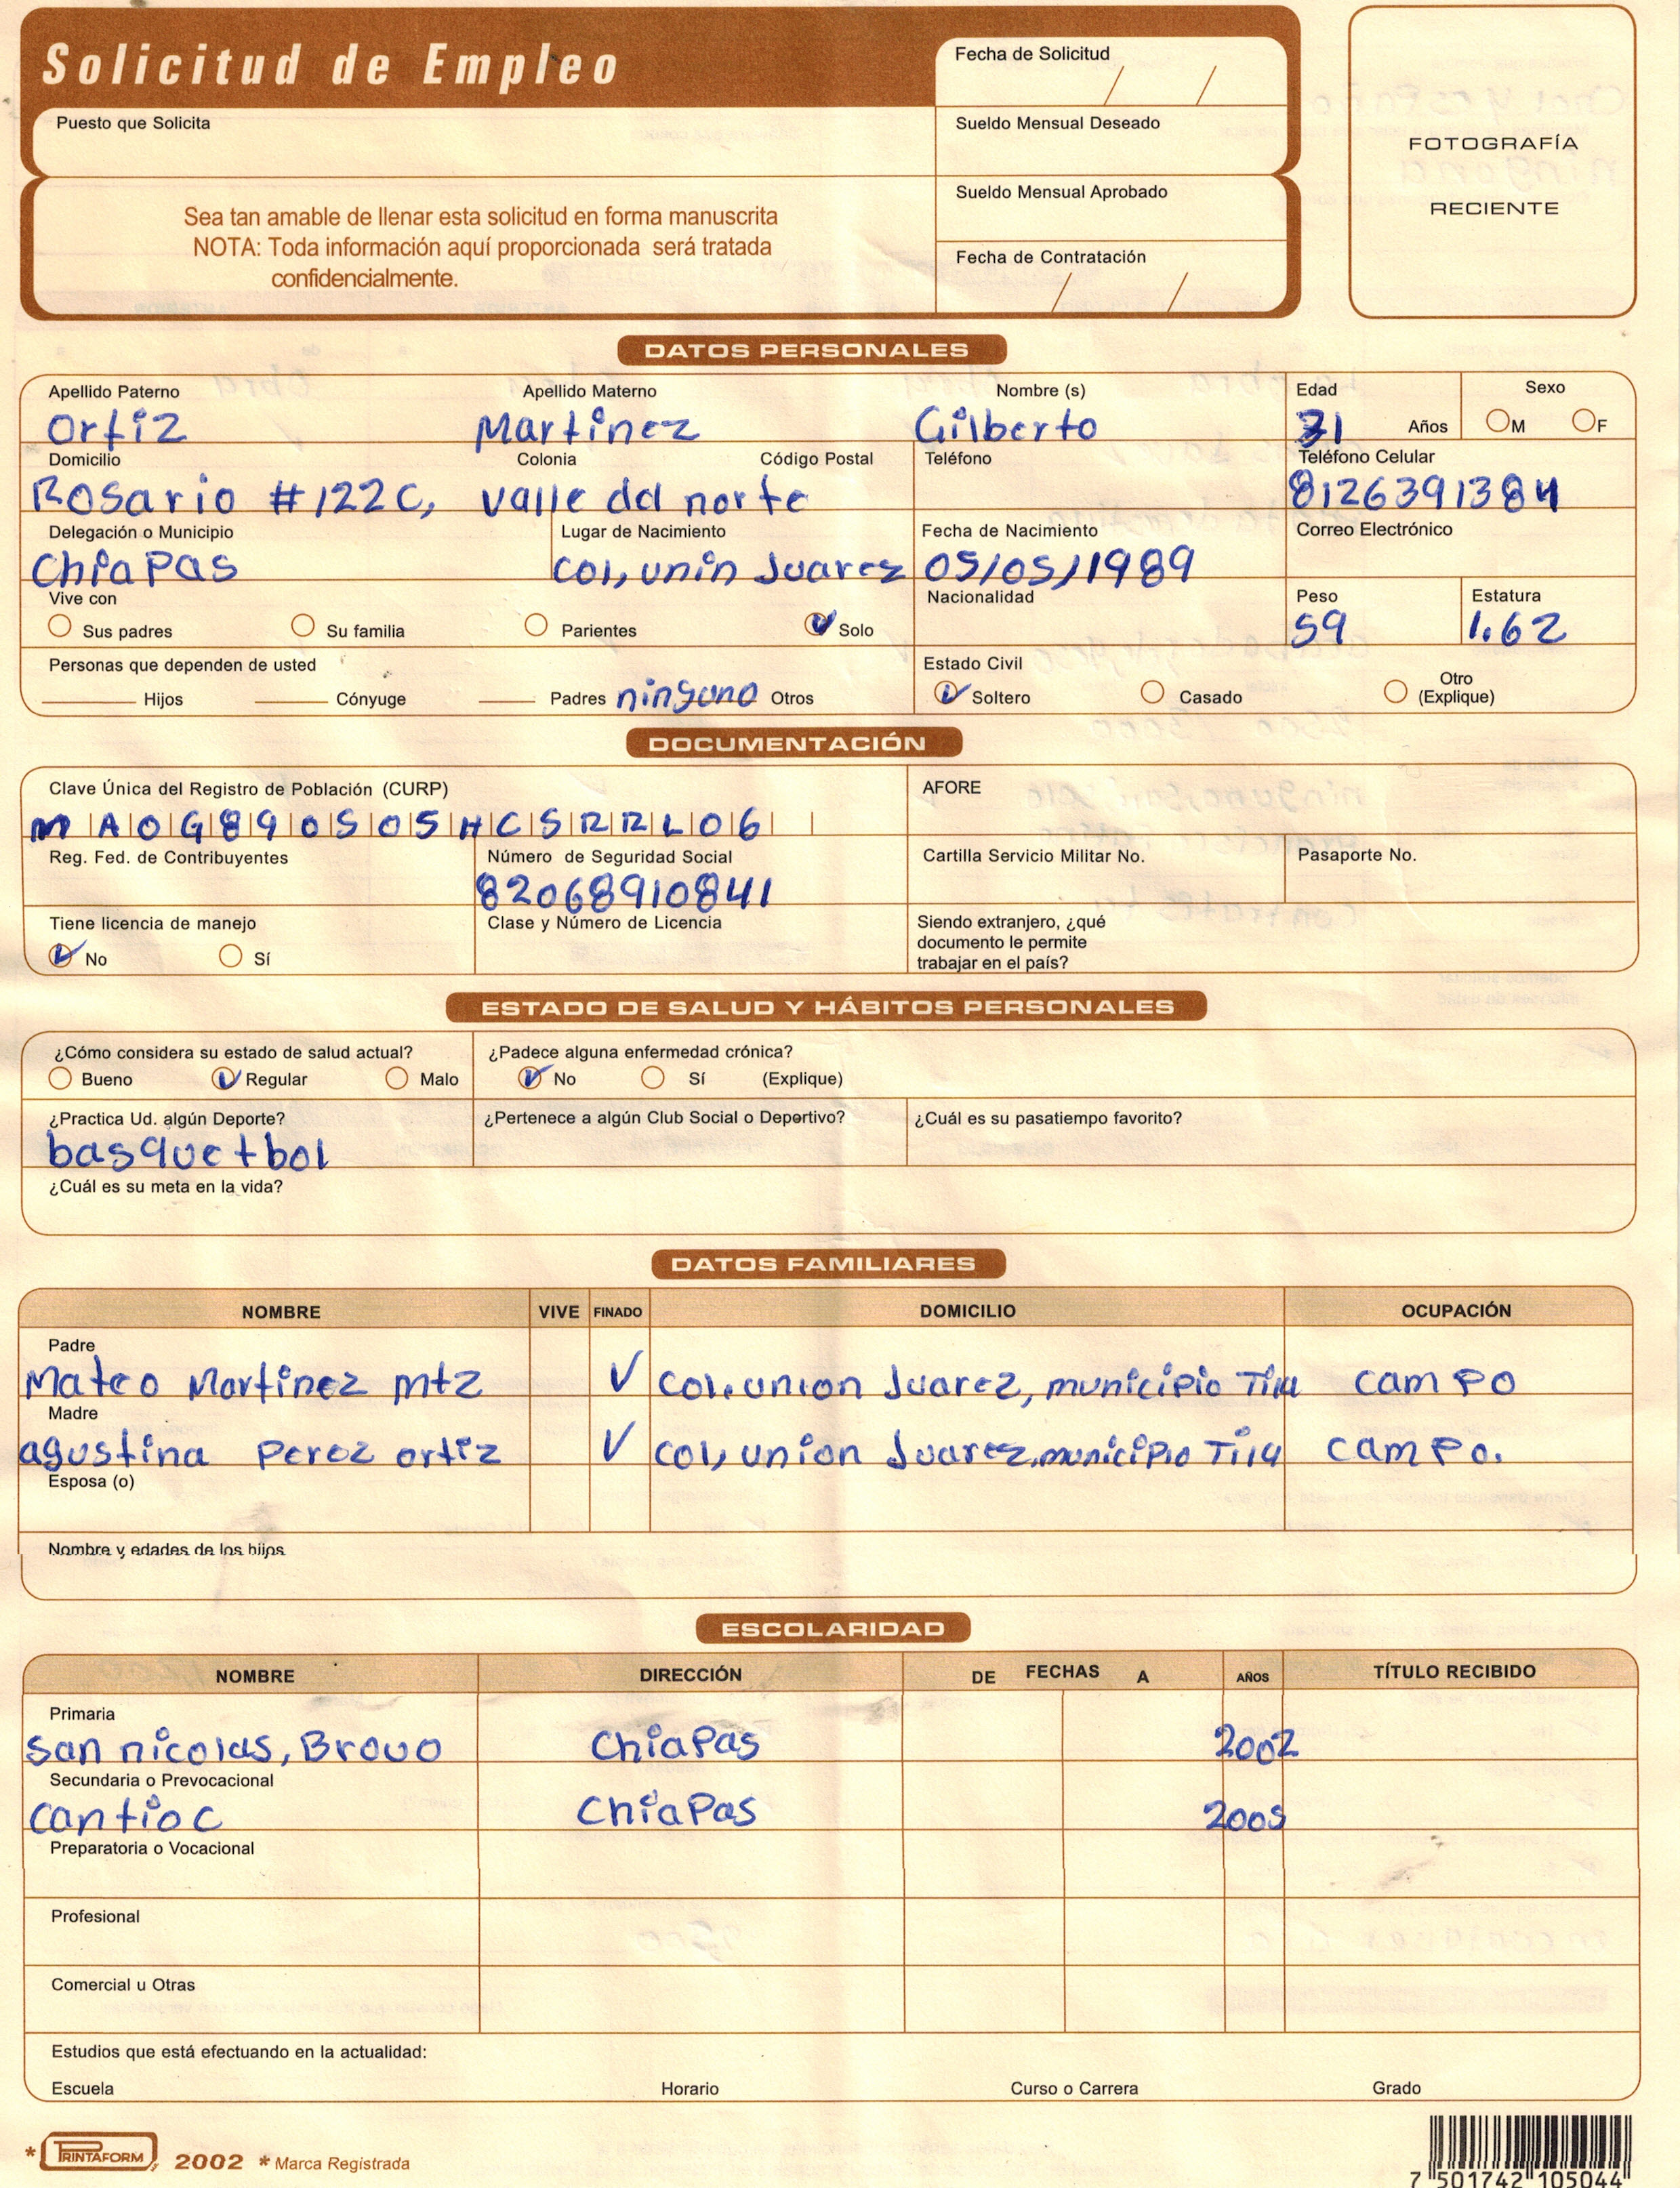 Solicitud de Empleo
Fecha de Solicitud / /
Puesto que Solicita
Sueldo Mensual Deseado
FOTOGRAFÍA
RECIENTE
Sea tan amable de llenar esta solicitud en forma manuscrita
NOTA: Toda información aquí proporcionada será tratada
confidencialmente.
Sueldo Mensual Aprobado
Fecha de Contratación / /
DATOS PERSONALES
Apellido Paterno Apellido Materno Nombre (s) Edad Sexo
Ortiz Martinez Gilberto 31 Años M F
Domicilio Colonia Código Postal Teléfono Teléfono Celular
Rosario #122C, valle del norte 8126391384
Delegación o Municipio Lugar de Nacimiento Fecha de Nacimiento Correo Electrónico
ChiaPas col, unin Juarez 05/05/1989
Vive con Nacionalidad Peso Estatura
Sus padres Su familia Parientes Solo 59 1.62
Personas que dependen de usted Estado Civil
Hijos Cónyuge Padres ninguno Otros Soltero Casado Otro (Explique)
DOCUMENTACIÓN
Clave Única del Registro de Población (CURP) AFORE
MAOG890505HCSRRL06
Reg. Fed. de Contribuyentes Número de Seguridad Social Cartilla Servicio Militar No. Pasaporte No.
82068910841
Tiene licencia de manejo Clase y Número de Licencia Siendo extranjero, ¿qué
documento le permite
trabajar en el país?
No Sí
ESTADO DE SALUD Y HÁBITOS PERSONALES
¿Cómo considera su estado de salud actual? ¿Padece alguna enfermedad crónica?
Bueno Regular Malo No Sí (Explique)
¿Practica Ud. algún Deporte? ¿Pertenece a algún Club Social o Deportivo? ¿Cuál es su pasatiempo favorito?
basquetbol
¿Cuál es su meta en la vida?
DATOS FAMILIARES
NOMBRE VIVE FINADO DOMICILIO OCUPACIÓN
Padre
Mateo Martinez mtz V col. union Juarez, municipio Tila camPo
Madre
agustina Perez ortiz V col, union Juarez, municipio Tila camPo.
Esposa (o)
Nombre y edades de los hijos
ESCOLARIDAD
NOMBRE DIRECCIÓN DE FECHAS A AÑOS TÍTULO RECIBIDO
Primaria
San nicolas, Bravo ChiaPas 2002
Secundaria o Prevocacional
Cantioc ChiaPas 2005
Preparatoria o Vocacional
Profesional
Comercial u Otras
Estudios que está efectuando en la actualidad:
Escuela Horario Curso o Carrera Grado
* PRINTAFORM 2002 * Marca Registrada
7 501742 105044